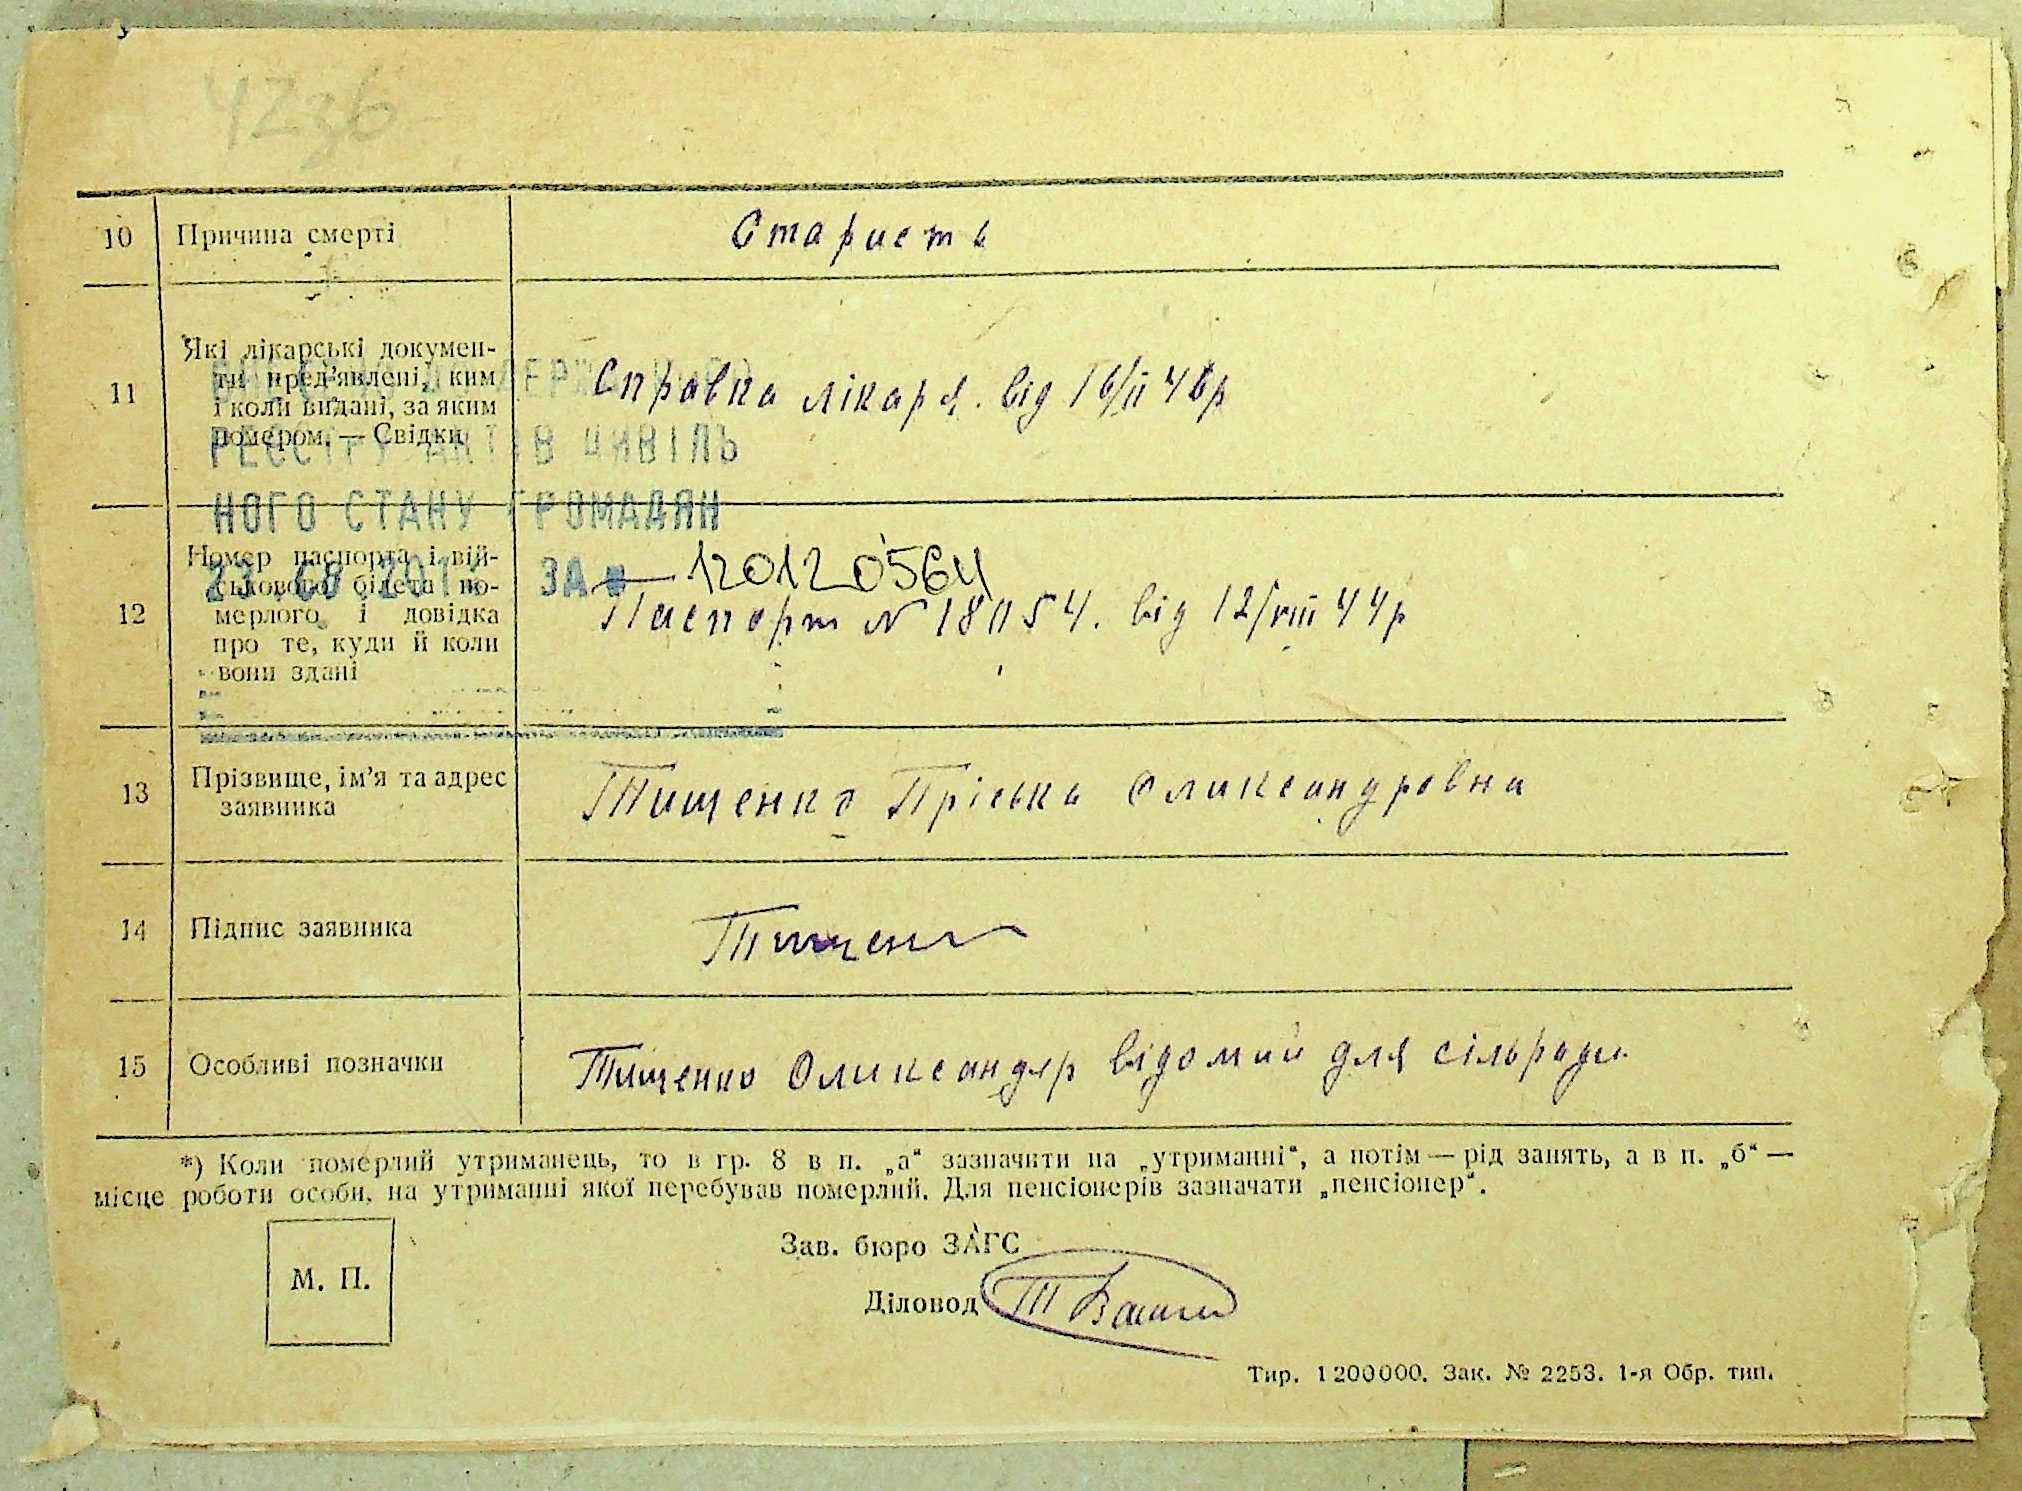 10 Причина смерті Старисть
11 Які лікарські докумен-
ти пред'явлені, ким
і коли видані, за яким
помером. — Свідки
Справка лікаря. від 16/II 46р
РЕЄСТРУ АКТІВ ЦИВІЛЬ
НОГО СТАНУ ГРОМАДЯН
ЗА № 12012 0564
12 Номер паспорта і вій-
ськового білета по-
мерлого і довідка
про те, куди й коли
вони здані
Паспорт N 18054. від 12/VIII 44р
13 Прізвище, ім'я та адрес
заявника
Тищенко Пріська Олександровна
14 Підпис заявника Тищен
15 Особливі позначки Тищенко Олександер відомий для сільради
*) Коли померлий утриманець, то в гр. 8 в п. „а“ зазначити на „утриманні“, а потім — рід занять, а в п. „б“ —
місце роботи особи, на утриманні якої перебував померлий. Для пенсіонерів зазначати „пенсіонер“.
М. П.
Зав. бюро ЗАГС
Діловод
Тир. 1 200 000. Зак. № 2253. 1-я Обр. тип.